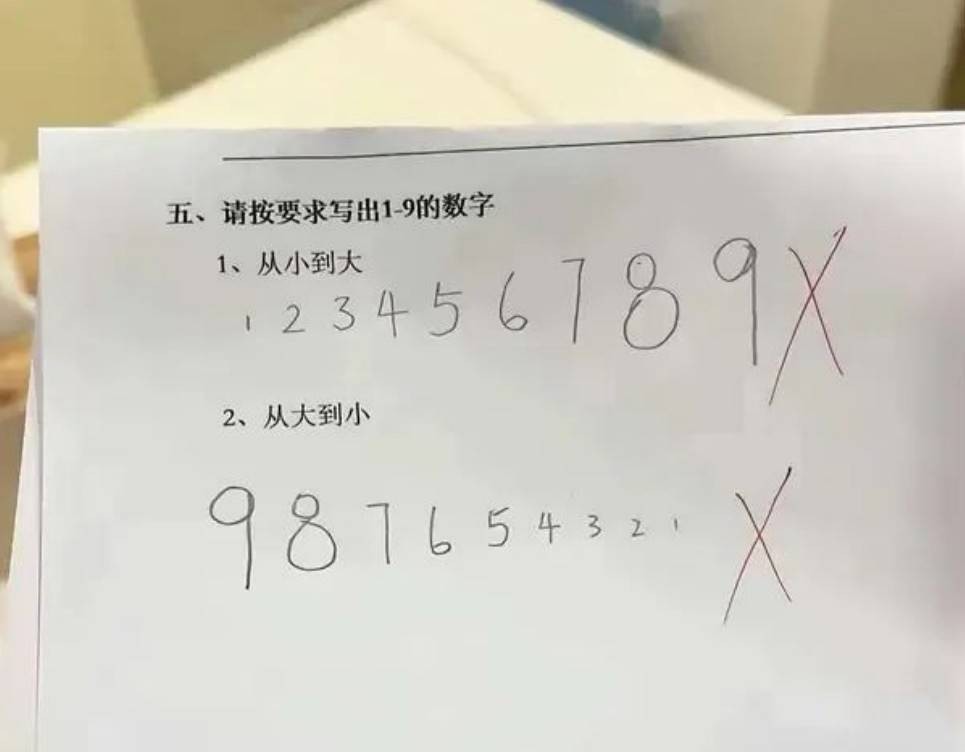 五、请按要求写出1-9的数字
1、从小到大
1 2 3 4 5 6 7 8 9
2、从大到小
9 8 7 6 5 4 3 2 1